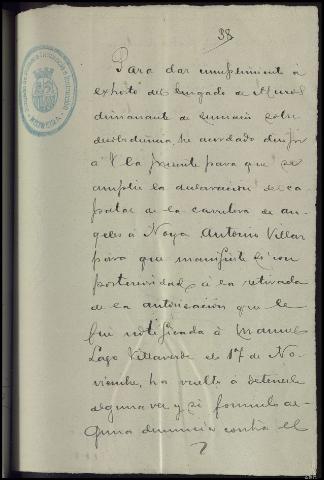 38
Para dar cumplimiento á
exhorto del Juzgado de Muros
dimanante de sumario sobre
desobediencia he acordado dirigir
á V. la presente para que se
amplie la declaracion del ca-
pataz de la carretera de An-
geles á Noya Antonio Villar
para que manifieste si con
posterioridad á la retirada
de la autorizacion que le
fue notificada á Manuel
Lago Villaverde el 17 de No-
viembre, ha vuelto á detenerle
alguna vez y si formuló al-
guna denuncia contra el